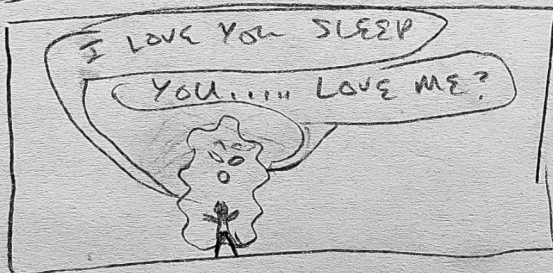 I LOVE YOU SLEEP
YOU..... LOVE ME?